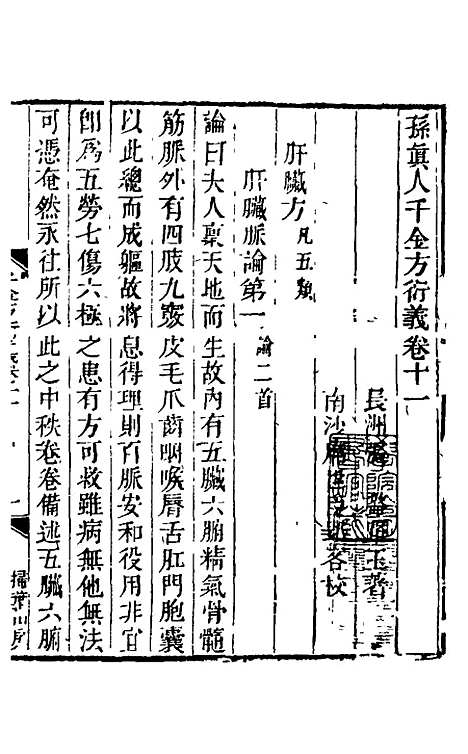 孫眞人千金方衍義卷十一
長洲張璐路玉著
南沙席世臣郢客校
肝臟方凡五類
肝臟脈論第一論二首
論曰夫人稟天地而生故內有五臟六腑精氣骨髓
筋脈外有四肢九竅皮毛爪齒咽喉脣舌肛門胞囊
以此總而成軀故將息得理則百脈安和役用非宜
卽爲五勞七傷六極之患有方可救雖病無他無法
可憑奄然永往所以此之中秩卷卷備述五臟六腑
千金方衍義卷十一
一
掃葉山房